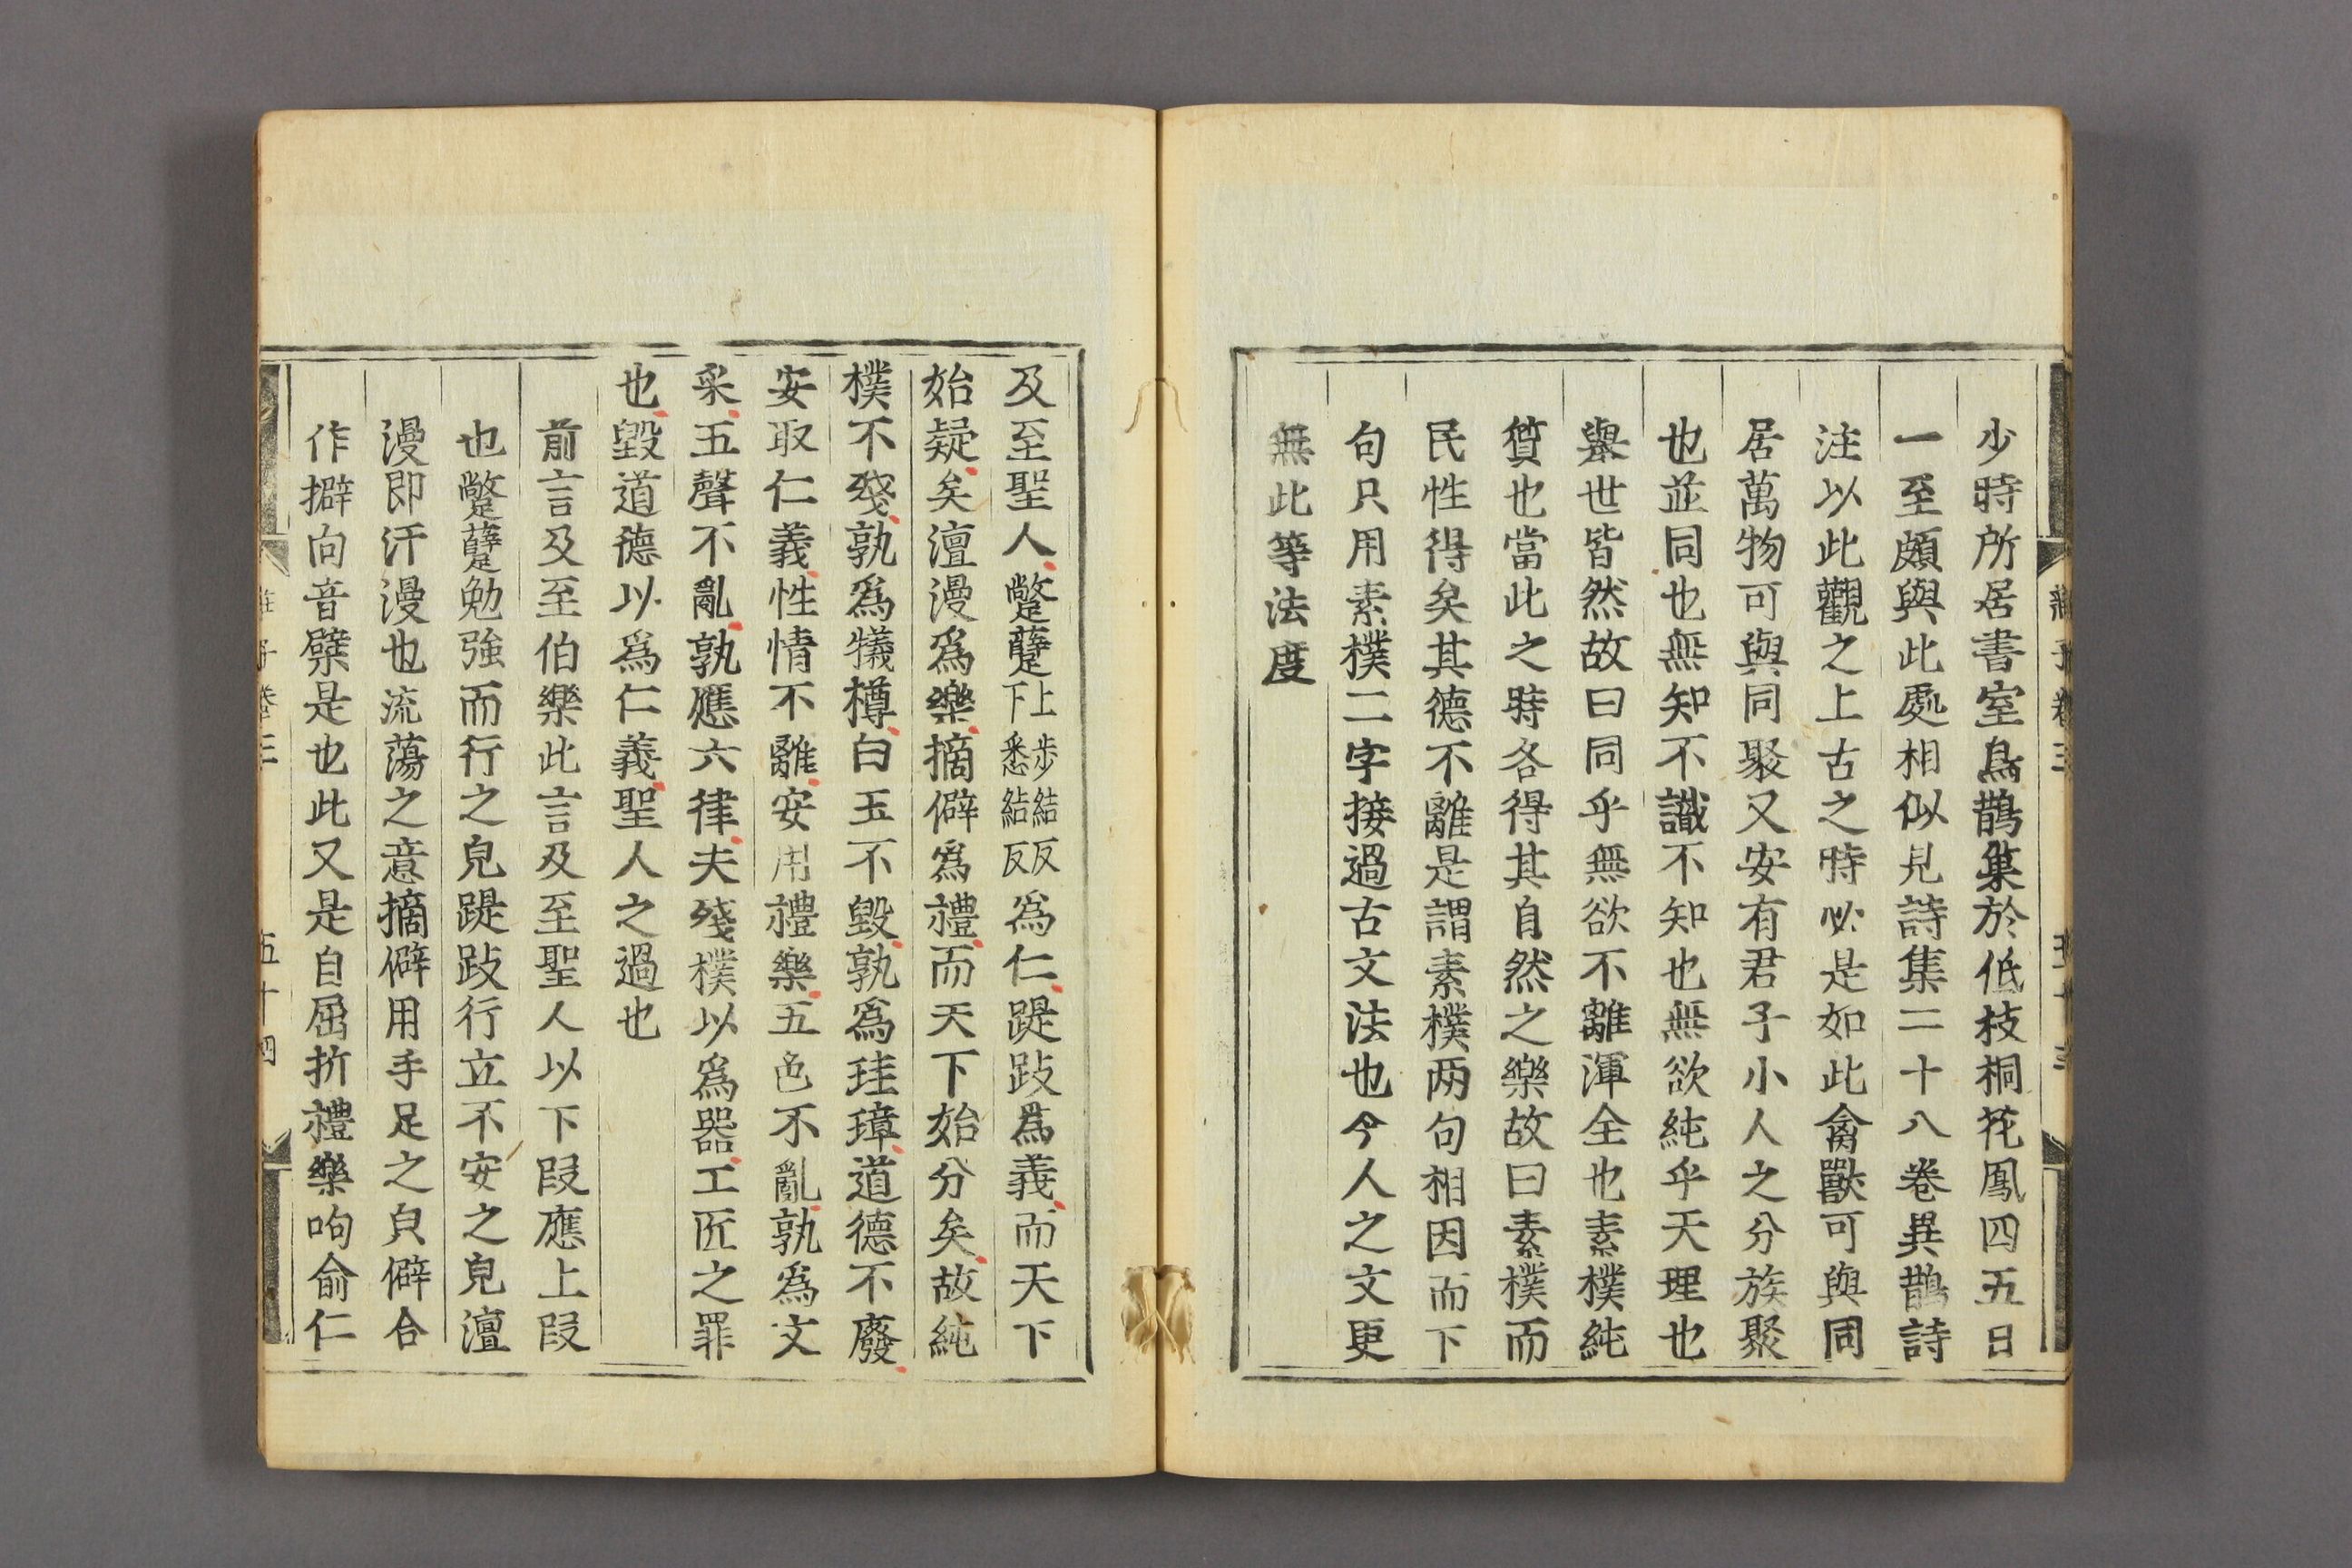 少時所居書室鳥鵲巢於低枝桐花鳳四五日
一至頗與此處相似見詩集二十八卷異鵲詩
注以此觀之上古之時必是如此禽獸可與同
居萬物可與同聚又安有君子小人之分族聚
也並同也無知不識不知也無欲純乎天理也
舉世皆然故曰同乎無欲不離渾全也素樸純
質也當此之時各得其自然之樂故曰素樸而
民性得矣其德不離是謂素樸两句相因而下
句只用素樸二字接過古文法也今人之文更
無此等法度
及至聖人蹩躠上步結反下悉結反為仁踶跂為義而天下
始疑矣澶漫為樂摘僻為禮而天下始分矣故純
樸不殘孰為犧樽白玉不毀孰為珪璋道德不廢
安取仁義性情不離安用禮樂五色不亂孰為文
采五聲不亂孰應六律夫殘樸以為器工匠之罪
也毀道德以為仁義聖人之過也
前言及至伯樂此言及至聖人以下段應上段
也蹩躠勉強而行之皃踶跂行立不安之皃澶
漫即汗漫也流蕩之意摘僻用手足之皃僻合
作擗向音檗是也此又是自屈折禮樂呴俞仁
莊子卷三 五十四